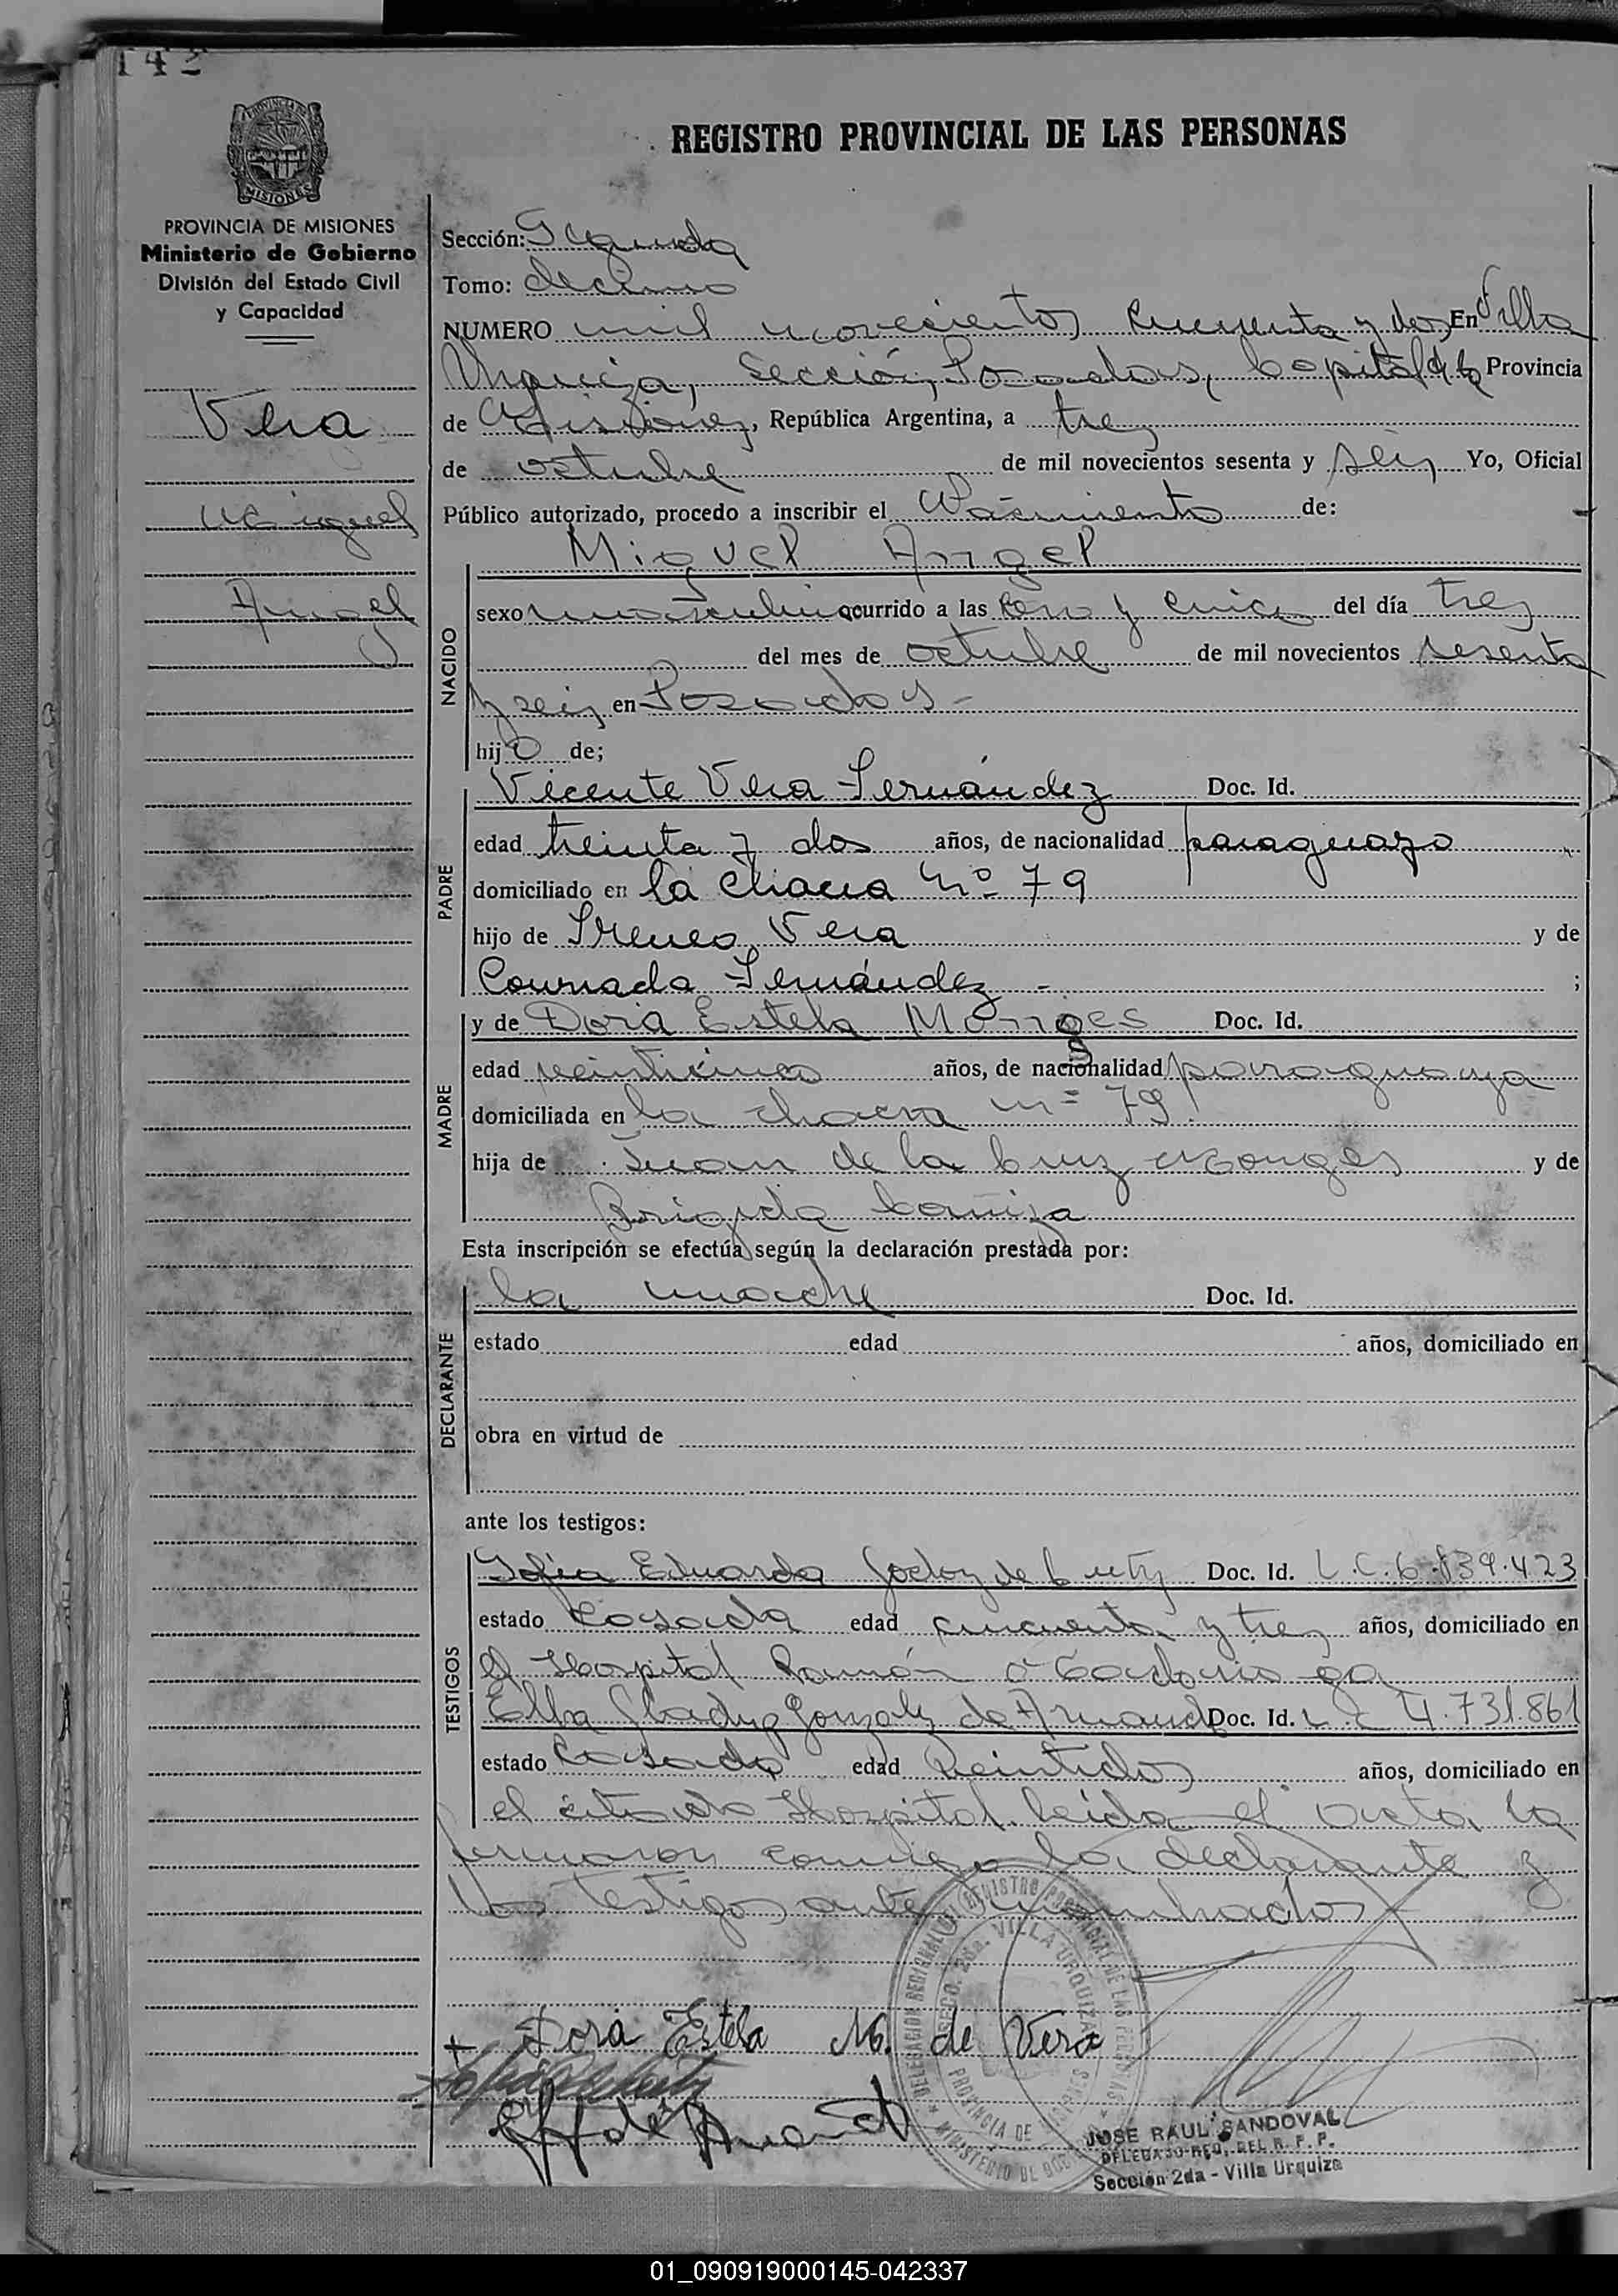 142
REGISTRO PROVINCIAL DE LAS PERSONAS
PROVINCIA DE MISIONES
MISIONES
PROVINCIA DE MISIONES
Ministerio de Gobierno
División del Estado Civil
y Capacidad
Vera
Miguel
Angel
Sección: Segunda
Tomo: décimo
NUMERO mil novecientos cincuenta y dos En Villa
Urquiza, Sección, Posadas, Capital de la Provincia
de Misiones, República Argentina, a tres
de octubre de mil novecientos sesenta y seis Yo, Oficial
Público autorizado, procedo a inscribir el Nacimiento de:
Miguel Angel
NACIDO
sexo masculino ocurrido a las cero y cinco del día tres
del mes de octubre de mil novecientos sesenta
y seis en Posadas -
hijo de;
PADRE
Vicente Vera Fernández Doc. Id.
edad treinta y dos años, de nacionalidad paraguayo
domiciliado en la chacra Nº 79
hijo de Ireneo Vera y de
Fernández - ;
MADRE
y de Dora Estela Monges Doc. Id.
edad veinticinco años, de nacionalidad paraguaya
domiciliada en la chacra nº 79
hija de Juan de la Cruz Monges y de
Brigida Cañiza
Esta inscripción se efectúa según la declaración prestada por:
DECLARANTE
la madre Doc. Id.
estado edad años, domiciliado en
obra en virtud de
ante los testigos:
TESTIGOS
Sofia Eduarda Godoy de Doc. Id. L.C. 6.839.423
estado casada edad cincuenta y tres años, domiciliado en
el Hospital Ramón
Elba Gladys Gonzalez de Doc. Id. L.C 4.731.861
estado casada edad veintidos años, domiciliado en
el citado Hospital. leída el acta la
firmaron conmigo la declarante y
los testigos ante nombrados
DELEGACION REGIONAL DEL REGISTRO PROVINCIAL DE LAS PERSONAS
SECC. 2da. VILLA URQUIZA
PROVINCIA DE MISIONES
MINISTERIO DE GOBIERNO
+ Dora Estela M. de Vera
JOSE RAUL SANDOVAL
DELEGADO REG. DEL R. P. P.
Sección 2da - Villa Urquiza
01_090919000145-042337